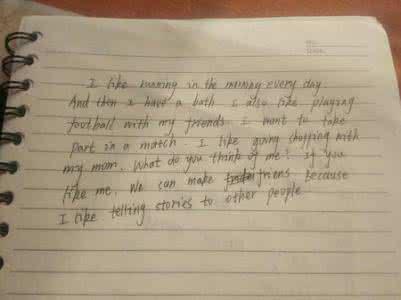 I like running in the morning every day.
And then I have a bath. I also like playing
football with my friends. I want to take
part in a match. I like going shopping with
my mom. What do you think of me? If you
like me. We can make friens. Because
I like telling stories to other people.